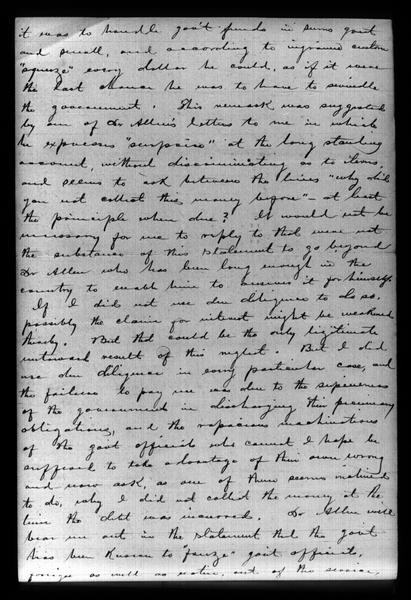 it was to handle gov't funds in sums great
and small, and according to ingrained custom
"squeeze" every dollar he could, as if it were
the last chance he was to have to swindle
the government. This remark was suggested
by one of Dr Allen's letters to me in which
he expresses "surprise" at the long standing
account, without discriminating as to items,
and seems to ask between the lines "why did
you not collect this money before" - at least
the principle when due? It would not be
necessary for me to reply to that were not
the substance of this statement to go beyond
Dr Allen who has been long enough in the
country to enable him to answer it for himself.
If I did not use due diligence to do so,
possibly the claim for interest might be weakened
thereby. But that would be the only legitimate
outward result of this neglect. But I did
use due diligence in every particular case, and
the failure to pay me was due to the
of the government in discharging their pecuniary
obligations, and the rapacious machinations
of the gov't officials who cannot I hope be
suffered to take advantage of their own wrong
and now ask, as one of them seems inclined
to do, why I did not collect the money at the
time the debt was incurred. Dr Allen will
bear me out in the statement that the gov't
has been known to gov't officials,
foreign as well as native, out of the service,